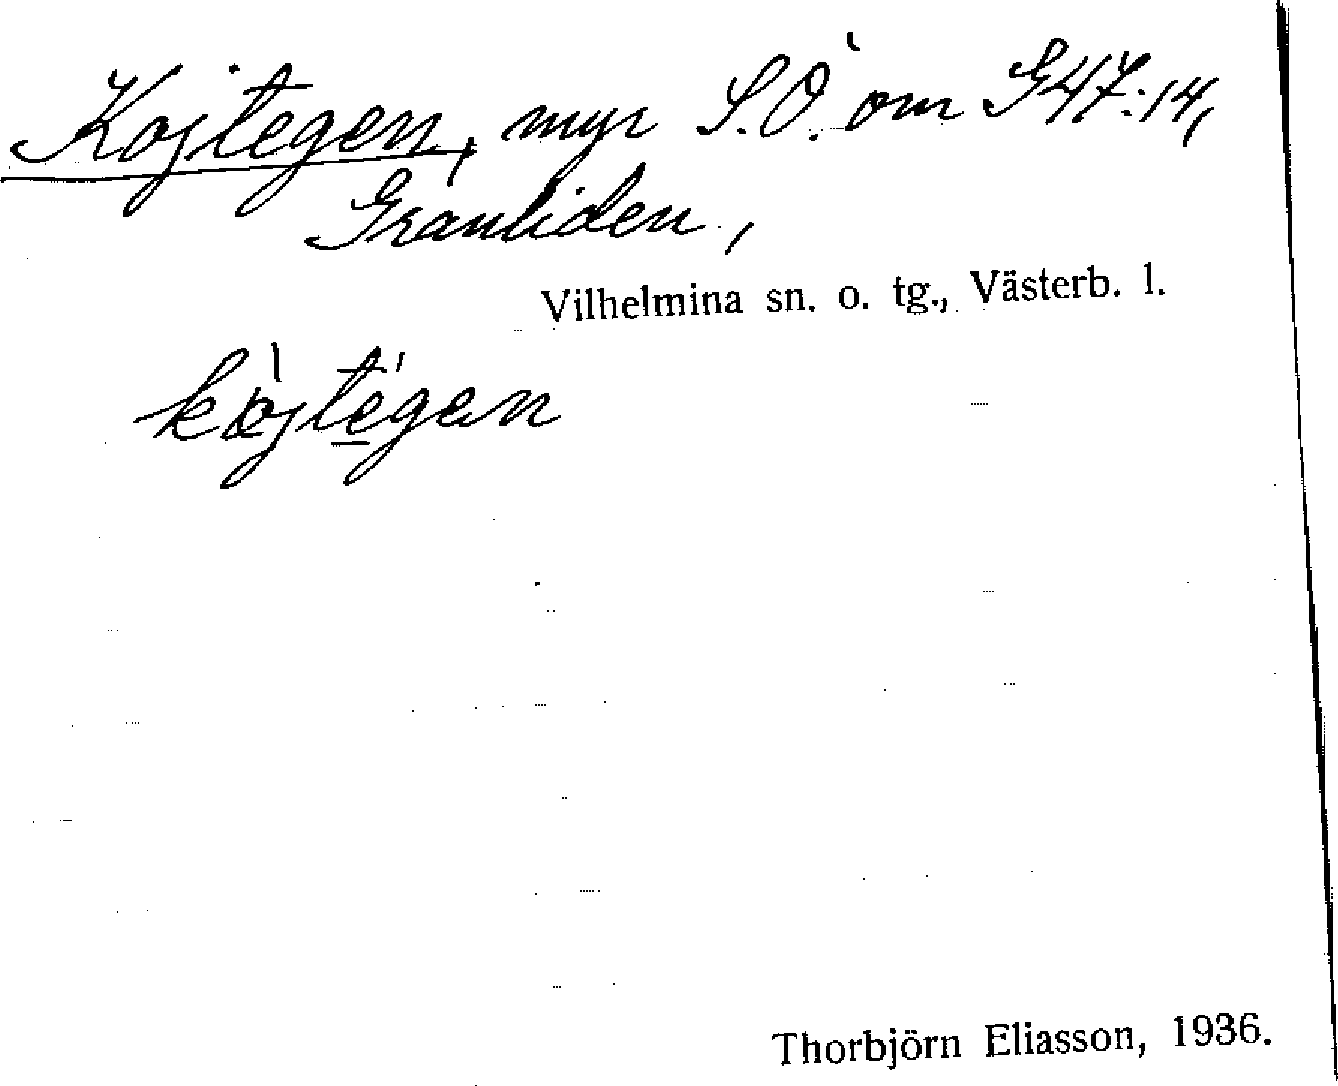 Kojtegen, myr S.Ö. om G47:14,
Granliden,
Vilhelmina sn. o. tg., Västerb. l.
Thorbjörn Eliasson, 1936.